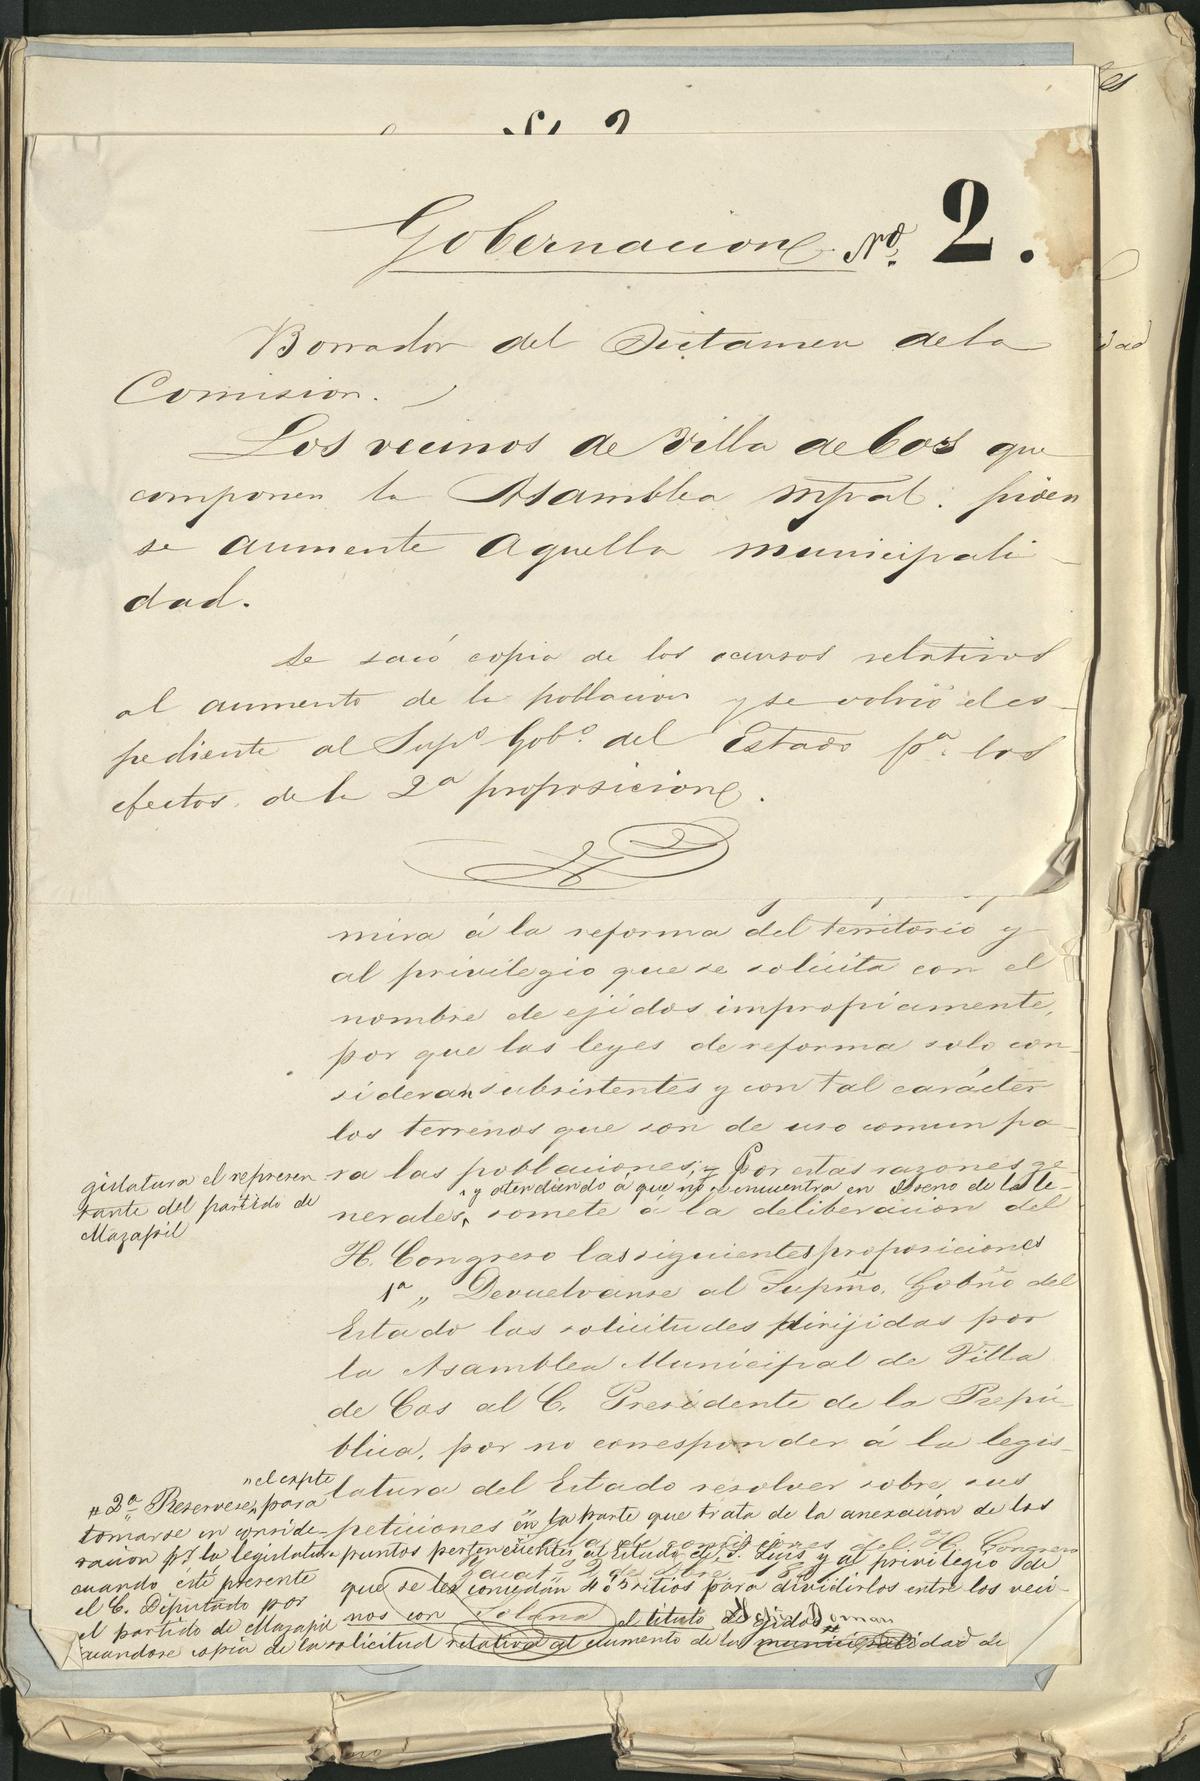 Gobernacion No. 2.
Borrador del Dictamen de la
Comision.
Los vecinos de Villa de Cos que
componen la Asamblea mpal. piden
se aumente aquella municipali
dad.
Se sacó copia de los ocursos relativos
al aumento de la poblacion y se volvió el es-
pediente al Supo. Gobo. del Estado pa. los
efectos de la 2a proposicion.
mira á la reforma del territorio y
al privilegio que se solicita con el
nombre de ejidos impropiamente,
por que las leyes de reforma solo con-
sideran subsistentes y con tal carácter
los terrenos que son de uso comun pa-
ra las poblaciones; Por estas razones ge-
y atendiendo á que no se encuentra en el seno de la Le-
gislatura el represen
tante del partido de
Mazapil
nerales, somete á la deliberacion del
H. Congreso las siguientes proposiciones
1a „ Devuelvanse al Supmo. Gobno del
Estado las solicitudes dirijidas por
la Asamblea Municipal de Villa
de Cos al C. Presidente de la Repú-
blica, por no corresponder á la legis-
latura del Estado resolver sobre sus
peticiones en la parte que trata de la anexacion de los
puntos pertenecientes al Estado de S. Luis y al privilegio de
que se les concedan 4 o 5 sitios para dividirlos entre los veci-
nos con el titulo de ejidos
Sala de comisiones del H. Congreso
Solana
"el expte
2a Reservese, para
tomarse en conside-
racion pr. la legislatura
cuando esté presente
el C. Diputado por
el partido de Mazapil
sacandose copia de la solicitud relativa al aumento de la municipalidad de